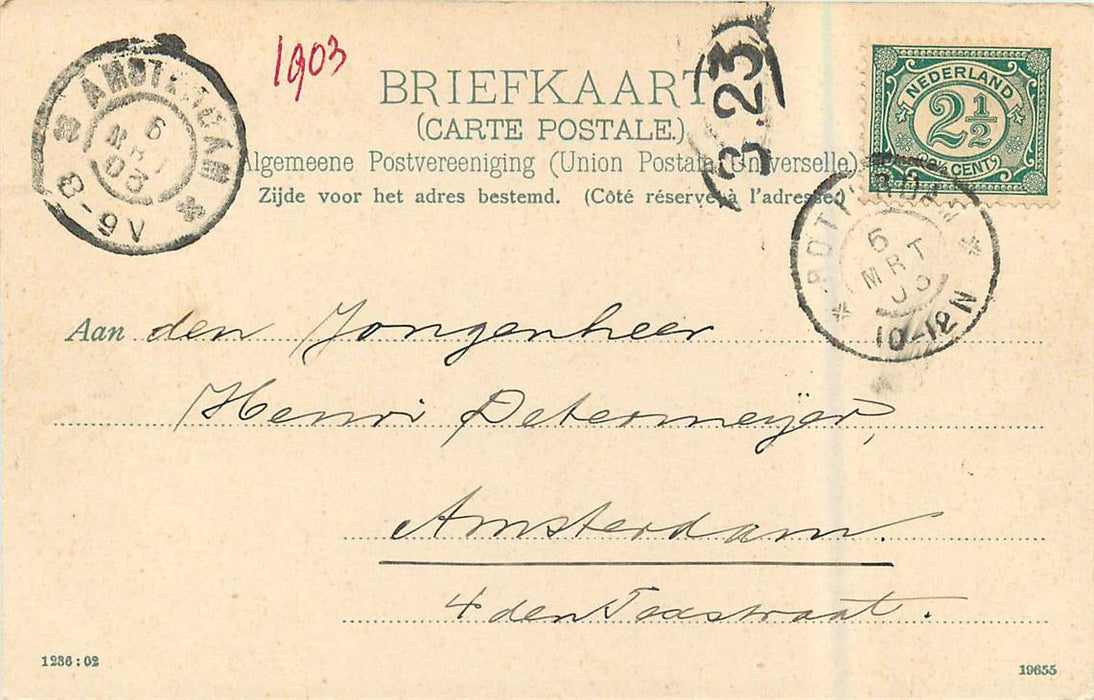 1903
BRIEFKAART
(CARTE POSTALE.)
Algemeene Postvereeniging (Union Postale Universelle)
Zijde voor het adres bestemd. (Côté réservé à l'adresse.)
AMSTERDAM
6
MRT
03
8-9V
3 23
NEDERLAND
2½
CENT
ROTTERDAM
6
MRT
03
10-12N
Aan den Jongenheer
Henri Petermeijer,
Amsterdam.
4 den
1236 : 02
19655